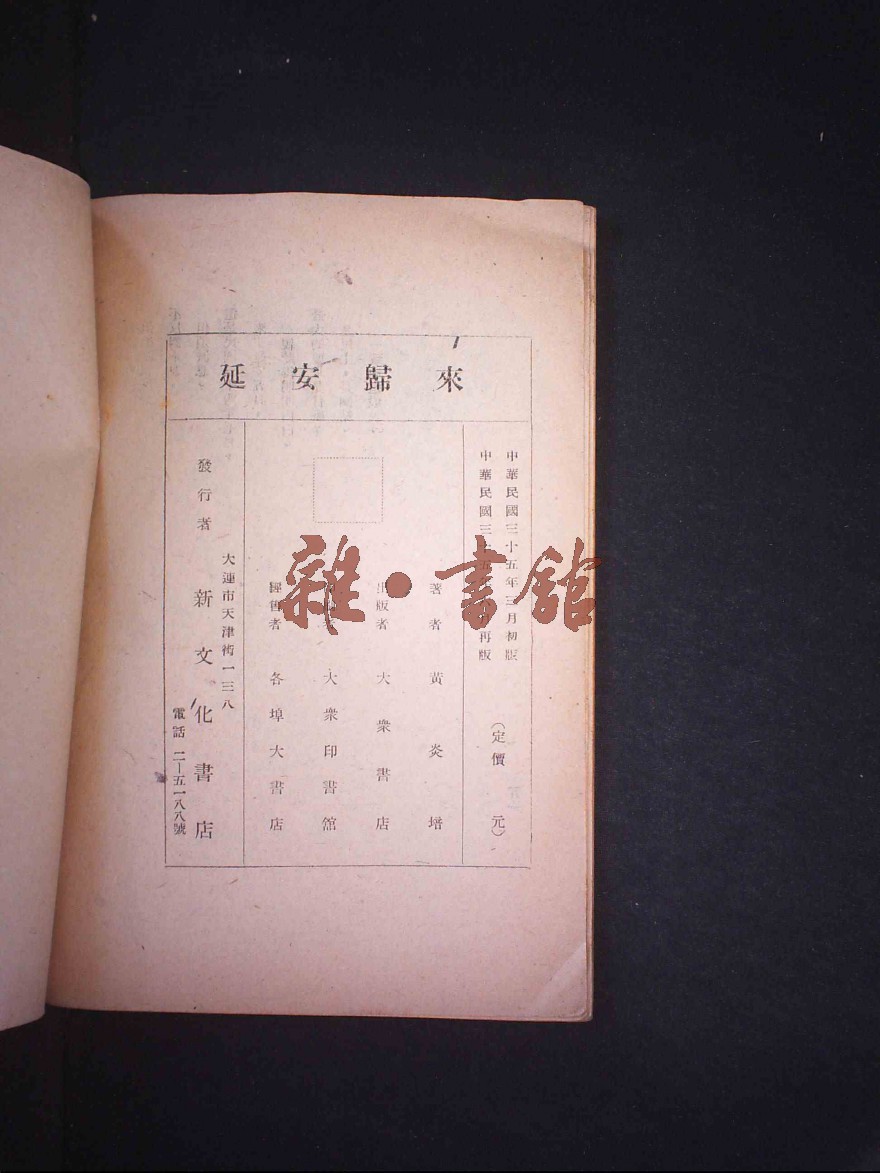 延安歸來
中華民國三十五年三月初版
中華民國三十五 再版
(定價 元)
著者 黃炎培
出版者 大衆書店
大衆印書館
經售者 各埠大書店
大連市天津街一三八
發行者 新文化書店
電話 二—五一八八號
雜·書館